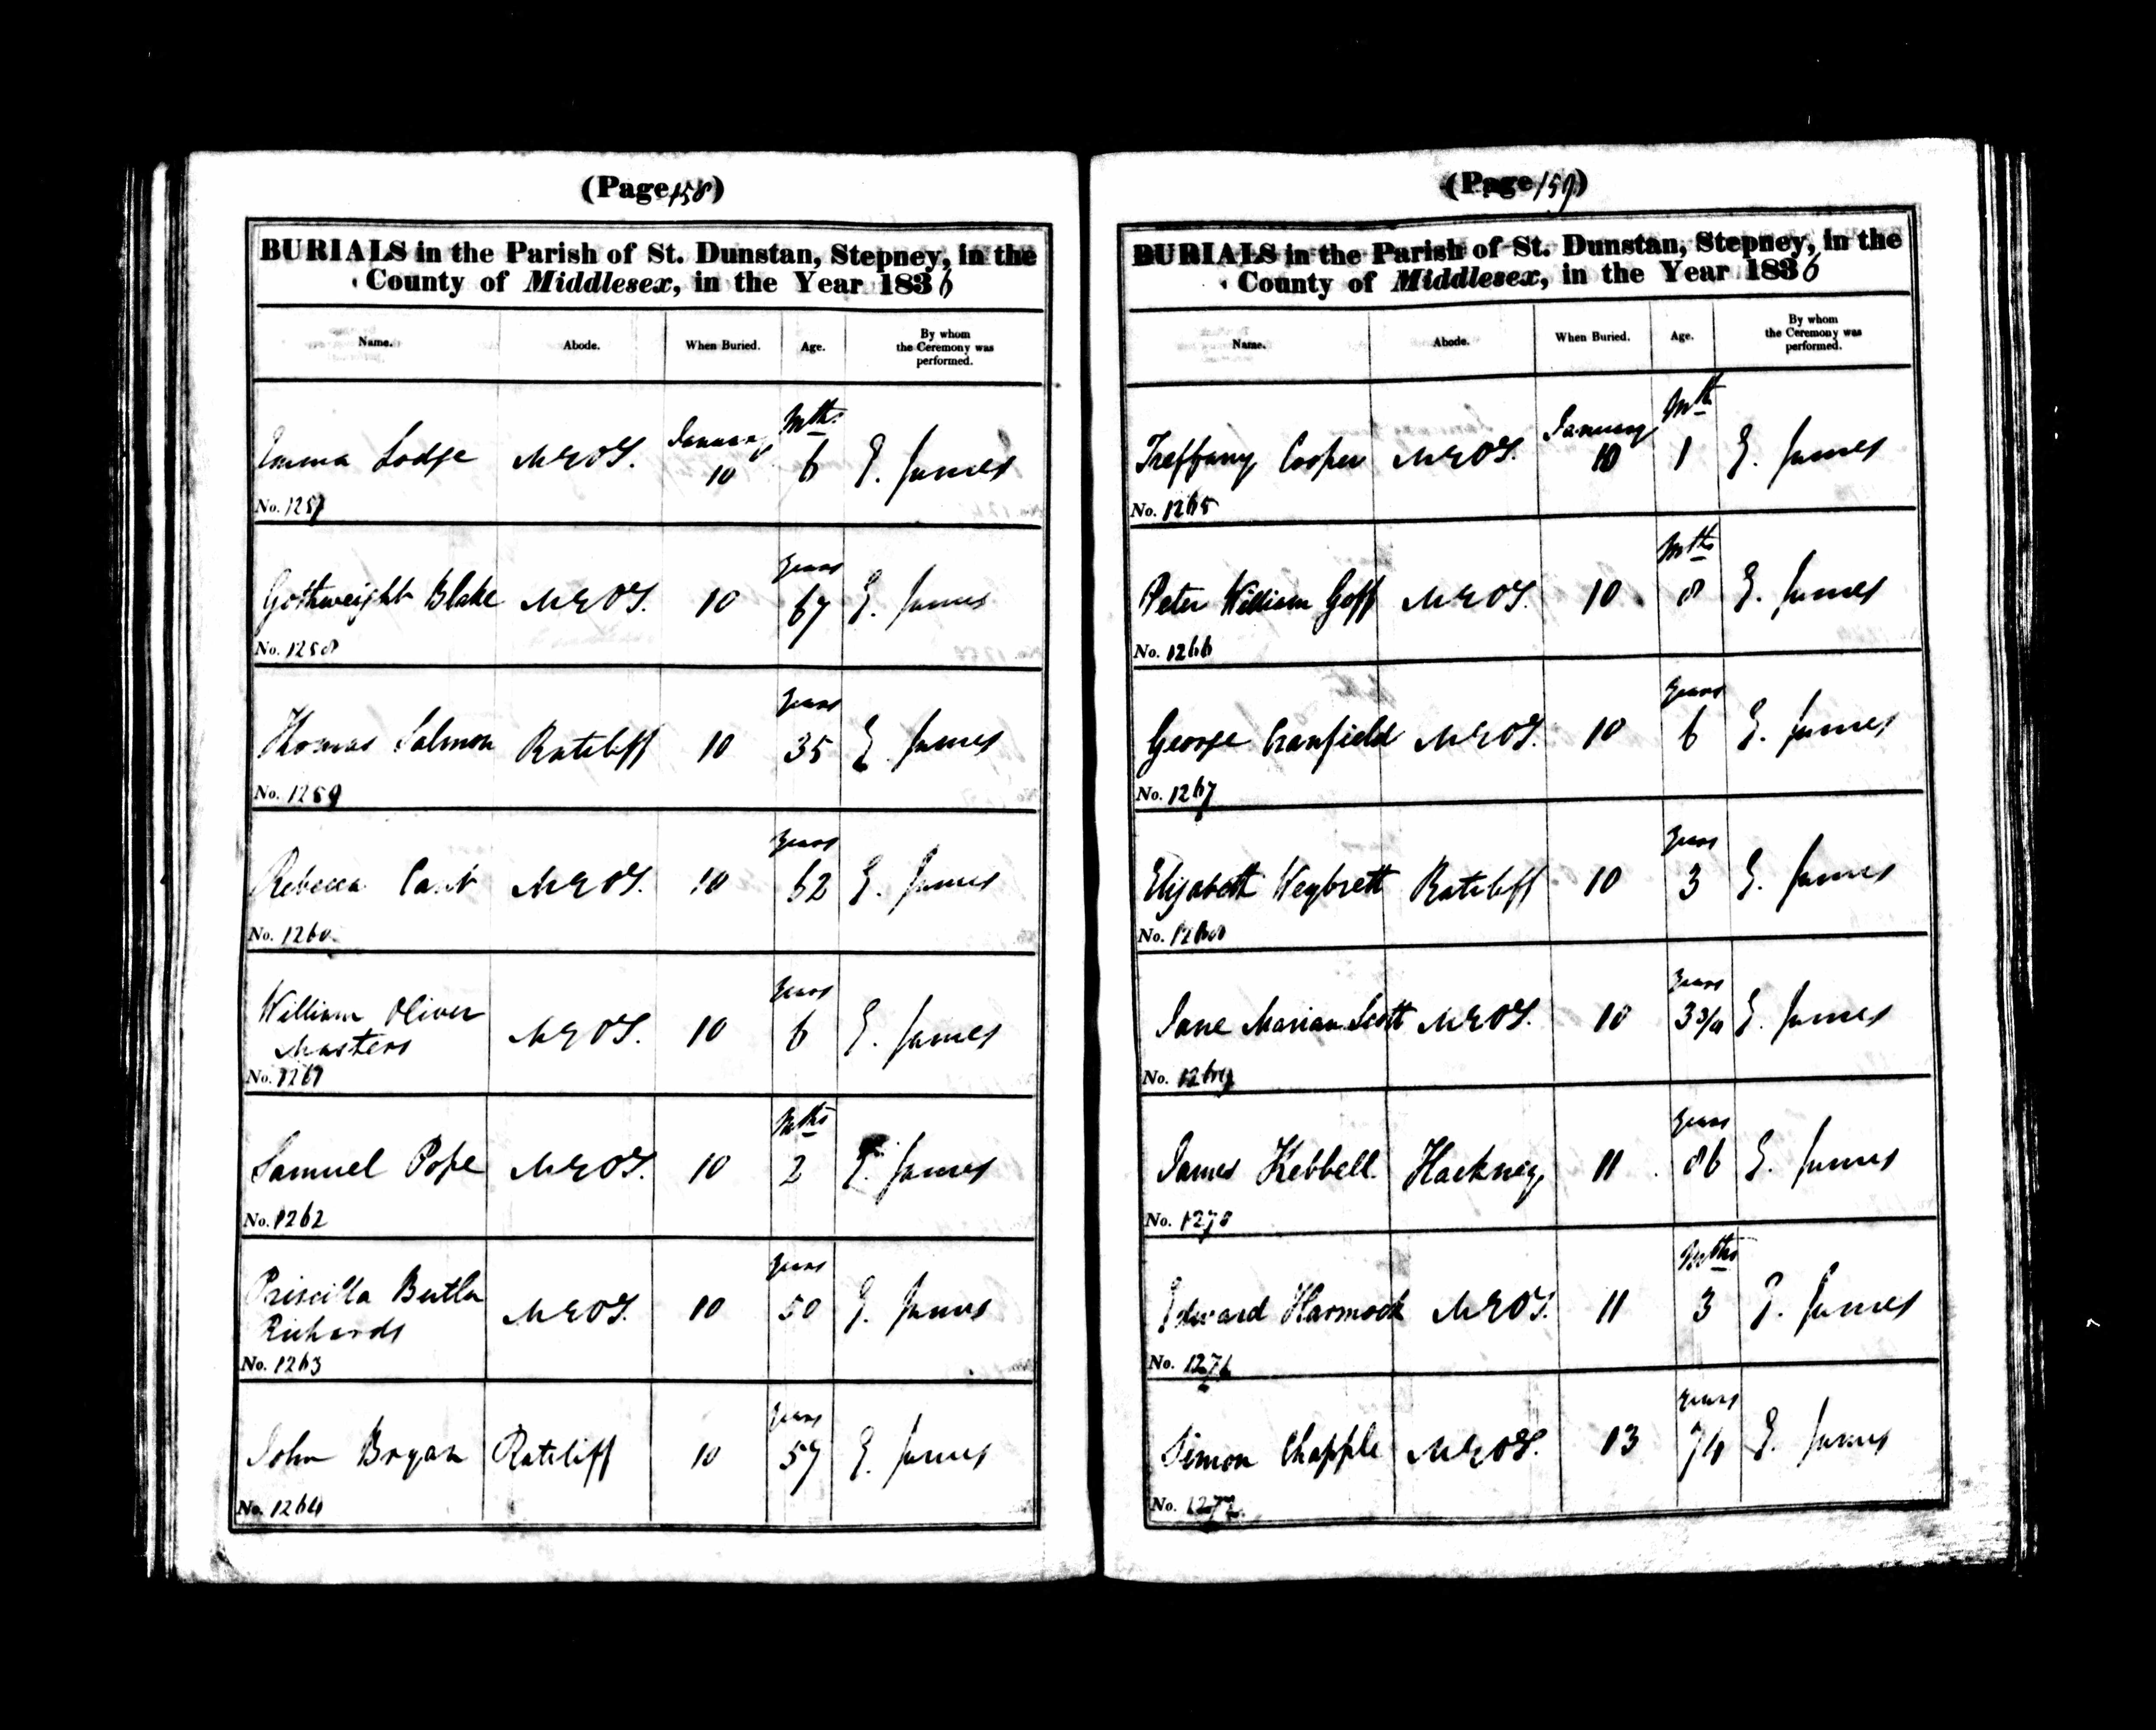 (Page 158)
BURIALS in the Parish of St. Dunstan, Stepney, in the
County of Middlesex, in the Year 1836
Name. Abode. When Buried. Age. By whom the Ceremony was performed.
Emma Lodge M E O T. January 10 Mths 6 E. James
No. 1257
Gothweight Blake M E O T. 10 Years 67 E. James
No. 1258
Thomas Salmon Ratcliff 10 Years 35 E. James
No. 1259
Rebecca Cant M E O T. 10 Years 62 E. James
No. 1260
William Oliver
Masters M E O T. 10 Years 6 E. James
No. 1261
Samuel Pope M E O T. 10 Mths 2 E. James
No. 1262
Priscilla Butler
Richards M E O T. 10 Years 50 E. James
No. 1263
John Bryan Ratcliff 10 Years 57 E. James
No. 1264
(Page 159)
BURIALS in the Parish of St. Dunstan, Stepney, in the
County of Middlesex, in the Year 1836
Name. Abode. When Buried. Age. By whom the Ceremony was performed.
Treffany Cooper M E O T. January 10 Mth 1 E. James
No. 1265
Peter William Goff M E O T. 10 Mths 8 E. James
No. 1266
George Cranfield M E O T. 10 Years 6 E. James
No. 1267
Elizabeth Weybrett Ratcliff 10 Years 3 E. James
No. 1268
Jane Marian Scott M E O T. 10 Years 3 3/4 E. James
No. 1269
James Kebbell Hackney 11 Years 86 E. James
No. 1270
Edward Harmock M E O T. 11 Mths 3 E. James
No. 1271
Simon Chapple M E O T. 13 Years 74 E. James
No. 1272